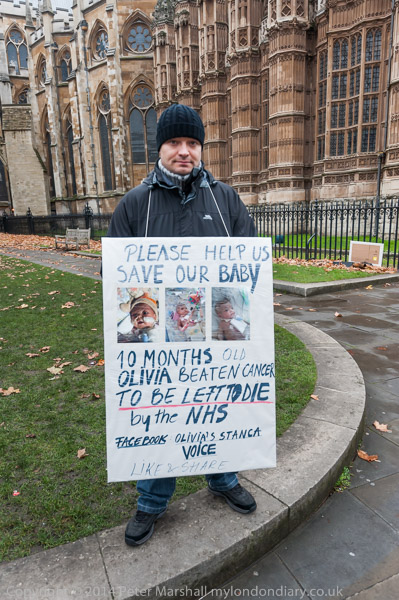 PLEASE HELP US
SAVE OUR BABY
10 MONTHS OLD
OLIVIA BEATEN CANCER
TO BE LEFT TO DIE
by the NHS
FACEBOOK OLIVIA'S STANCA
VOICE
LIKE & SHARE
Copyright © 2014 Peter Marshall mylondondiary.co.uk